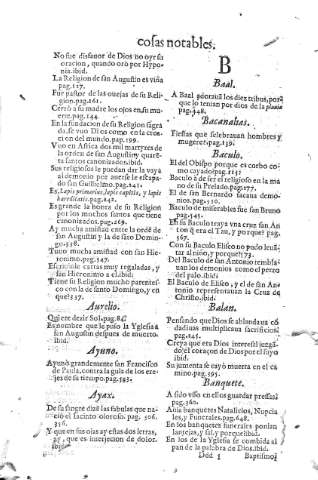 cosas notables.
No fue disfauor de Dios no oyr su
oracion, quando ora por Hypo-
nia.ibid.
La Religion de san Augustin es viña
pag.117.
Fue pastor de las ouejas de su Reli-
gion.pag.161.
Cerrò a su madre los ojos en su mu-
erte.pag.144.
En la fundacion de su Religion
se vio Dios como en la crea-
cion del mundo.pag.199.
Vuo en Africa dos mil martyres de
la orden de san Augustin y quarẽ-
ta santos canonizados.ibid.
Sus religiosos la puedan dar la vaya
al demonio por auerse le escapa-
do san Guillelmo.pag.241.
Es, Lapis primarius, lapis capitis, y lapis
pag.242.
Es grande la honra de su Religion
por los muchos santos que tiene
canonizados.pag.269.
Ay mucha amistad entre la ordẽ de
san Augustin y la de santo Domin-
go.338.
Tuuo mucha amistad con san Hie-
ronimo.pag.547.
Escriuiole cartas muy regaladas, y
san Hieronimo a el.ibid.
Tiene su Religion mucho parentes-
co con la de santo Domingo, y en
que?337.
Aurelio.
Quiere dezir Sol.pag.84
Es nombre que le puso la Yglesia à
san Augustin despues de muerto.
ibid.
Ayuno.
Ayunò grandemente san Francisco
de Paula, contra la gula de los ere-
jes de su tiempo.pag.593.
Ayax.
De su sangre dizẽ las fabulas que na-
ciò el jacinto oloroso. pag. 506.
356.
Y que en sus ojas ay estas dos letras,
ay, que es interjecion de dolor.
ibid.
B
Baal.
A Baal adorauã los diez tribus, porq̃
que lo tenian por dios de la
pag.548.
Bacanalias.
Fiestas que celebrauan hombres y
mugeres.pag.139.
Baculo.
El del Obispo porque es corbo co-
mo cayado?pag.113.
Baculo à de ser el religioso en la ma-
no de su Prelado.pag.177.
El de san Bernardo sacaua demo-
nios.pag.330.
Baculo de miserables fue san Bruno
pag.545.
En su Baculo traya vna cruz san An-
ton q̃ era el Tau, y porque? pag.
567.
Con su Baculo Eliseo no pudo leuã-
tar al niño, y porque?573.
Del Baculo de san Antonio tembla-
uan los demonios como el perro
del palo.ibid.
El Baculo de Eliseo, y el de san An-
tonio representauan la Cruz de
Christo.ibid.
Balan.
Pensando que Dios se ablandaua cõ
dadiuas multiplicaua sacrificios
pag.145.
Creya que era Dios interesal juzgã-
do el coraçon de Dios por el suyo
ibid.
Su jumenta se cayò muerta en el ca-
mino.pag.395.
Banquete.
A sido vso en ellos guardar presas?
pag.360.
Auia banquetes Natalicios, Nupcia
les, y Funerales.pag.648.
En los banquetes funerales ponian
lantejas, y sal, y porque?ibid.
En los de la Yglesia se combida al
pan de la palabra de Dios.ibid.
Ddd 3
Baptismo